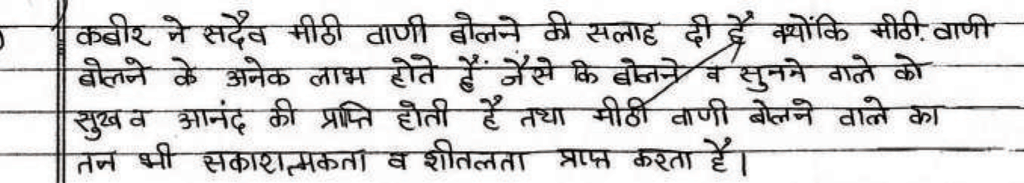 कबीर ने सदैव मीठी वाणी बोलने की सलाह दी है क्योंकि मीठी वाणी
बोलने के अनेक लाभ होते हैं जैसे कि बोलने व सुनने वाले को
सुख व आनंद की प्राप्ति होती है तथा मीठी वाणी बोलने वाले का
तन भी सकारात्मकता व शीतलता प्राप्त करता है।